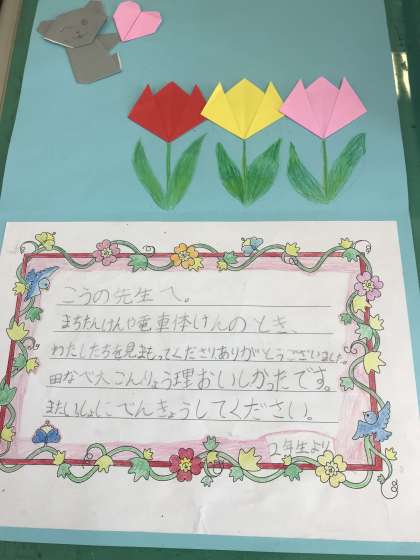 こうの先生へ。
まちたんけんや電車体けんのとき、
わたしたちを見まもってくださりありがとうございました。
田なべ大こんりょう理おいしかったです。
またいっしょにべんきょうしてください。
2年生より